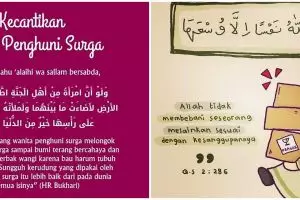 Kecantikan
Penghuni Surga
ahu 'alaihi wa sallam bersabda,
وَلَوْ أَنَّ امْرَأَةً مِنْ أَهْلِ الْجَنَّةِ
الْأَرْضِ لَأَضَاءَتْ مَا بَيْنَهُمَا وَلَمَلَأَتْهُ
عَلَى رَأْسِهَا خَيْرٌ مِنَ الدُّنْيَا
ang wanita penghuni surga melongok
rga sampai bumi terang bercahaya dan
erbak wangi karena bau harum tubuh
Sungguh kerudung yang dipakai oleh
surga itu lebih baik dari pada dunia
emua isinya" (HR Bukhari)
اللَّهُ نَفْسًا إِلَّا وُسْعَهَا
Allah tidak
membebani seseorang
melainkan sesuai
dengan kesanggupannya
Q.S 2:286